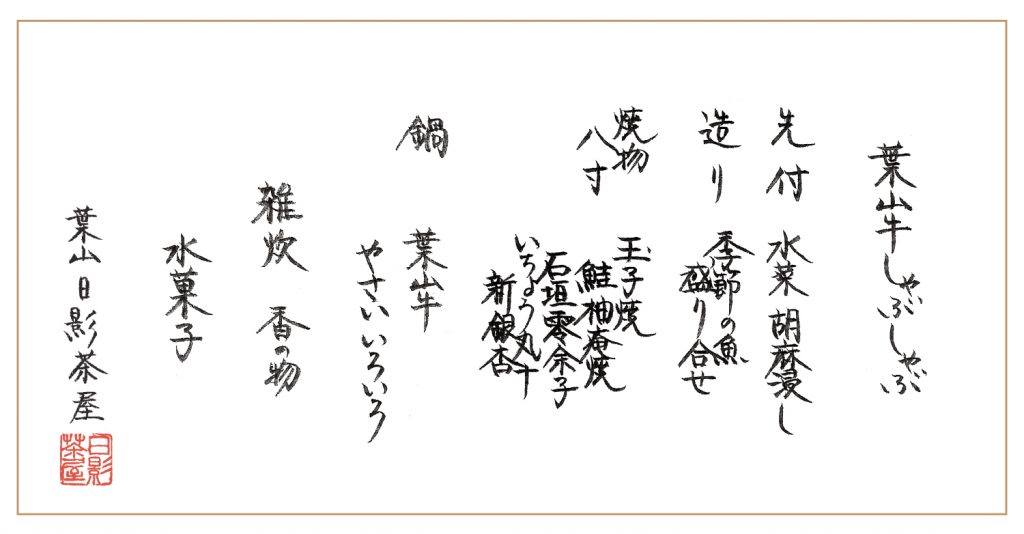 葉山牛しゃぶしゃぶ
先付 水菜胡麻浸し
造り 季節の魚
盛り合せ
焼物 玉子焼
八寸 鮭柚庵焼
石垣零余子
いちょう丸十
新銀杏
鍋 葉山牛
やさいいろいろ
雑炊 香の物
水菓子
葉山日影茶屋
日影
茶屋